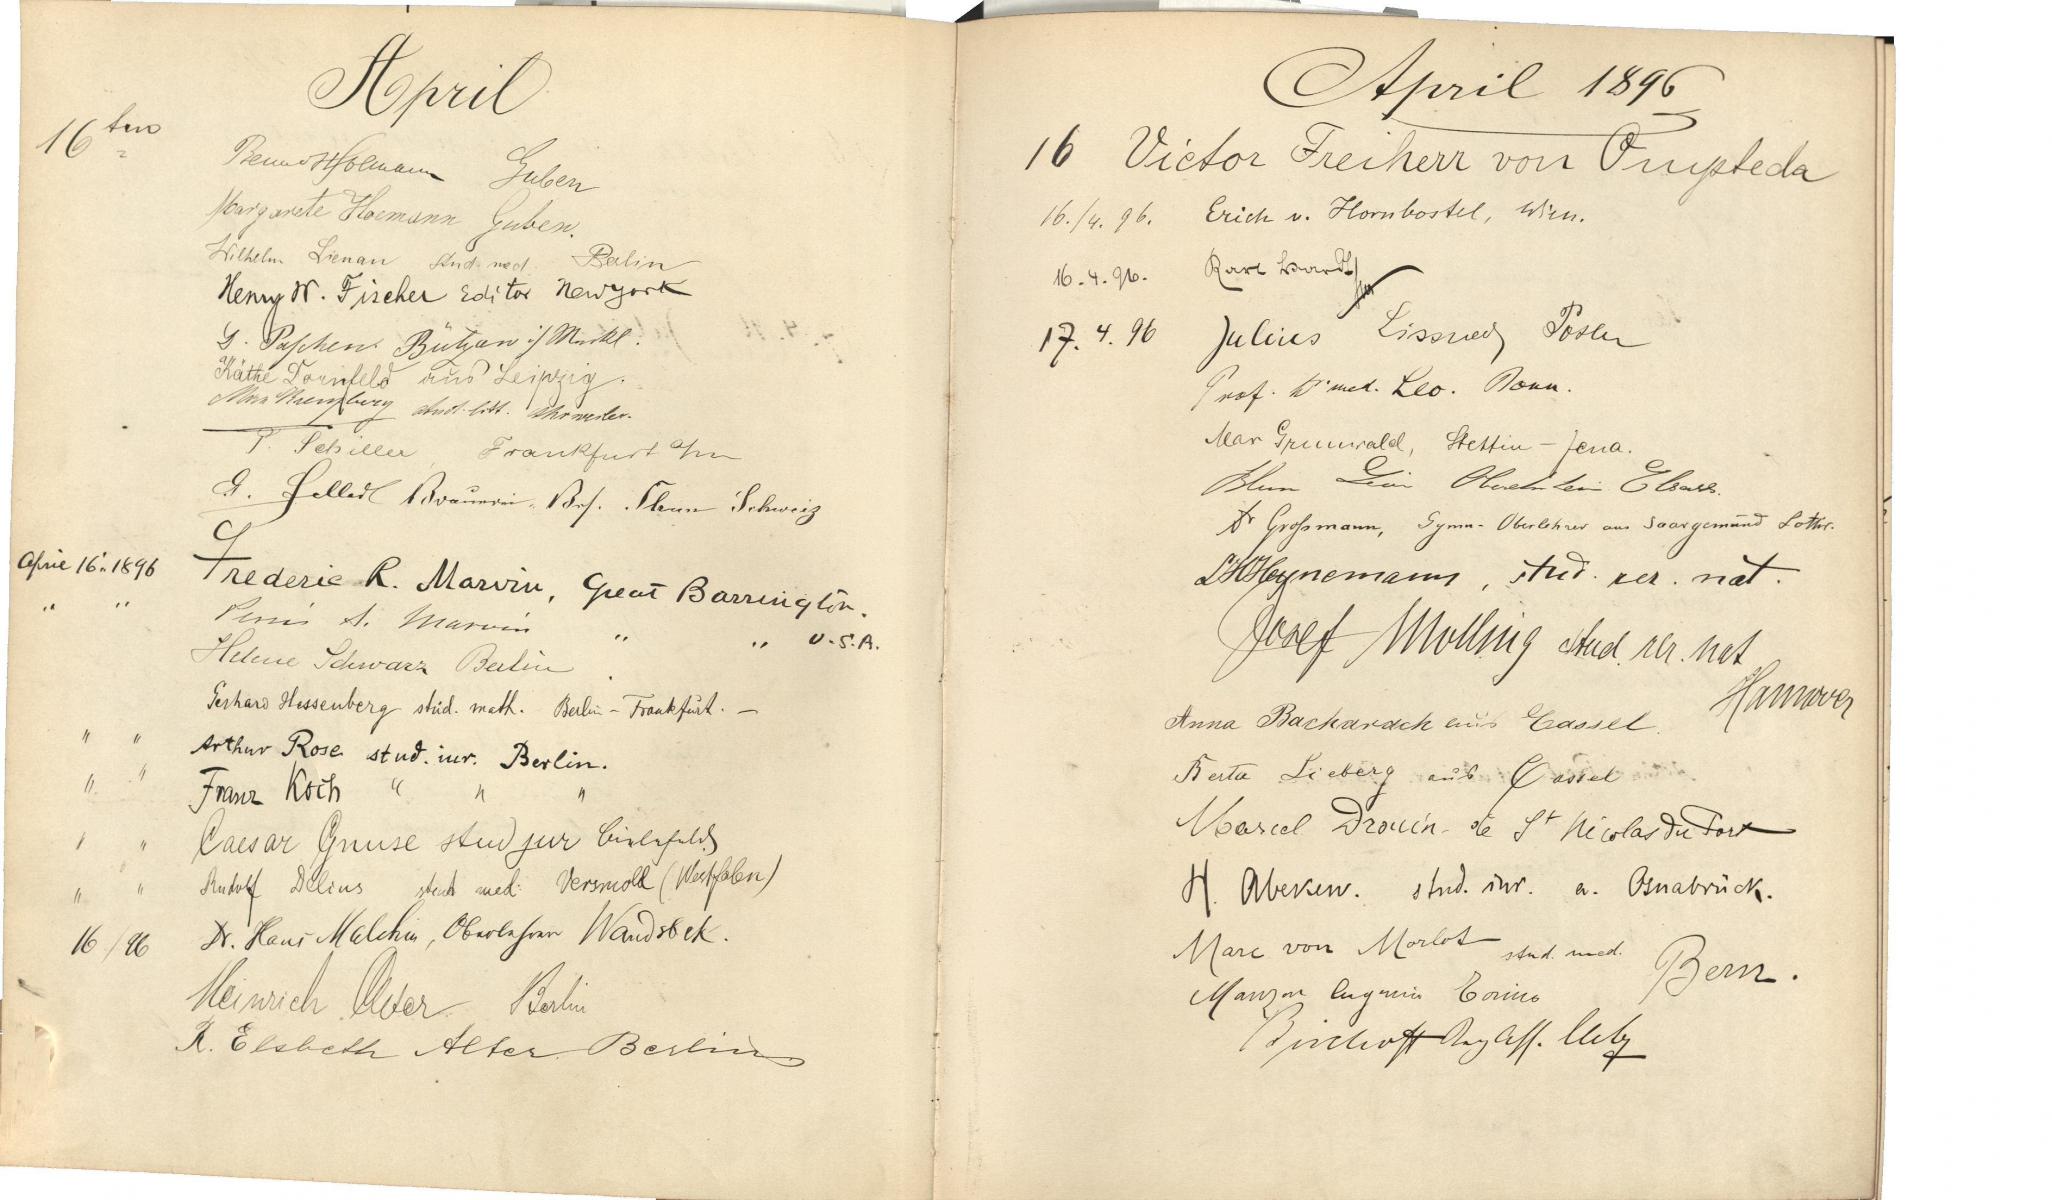 April
16 ten
Guben
Margarete Hoemann Guben.
Wilhelm Lienau stud. med. Berlin
Henry W. Fischer Editor New York
G. Paschen Bützow i/ Meckl.
Käthe Dornfeld aus Leipzig.
stud. litt.
P. Schiller, Frankfurt a/m
G. Brauerei. Bes. Thun Schweiz
April 16th 1896 Frederic R. Marvin, Great Barrington.
" " A. Marvin " " U.S.A.
Helene Schwarz Berlin.
Gerhard Hessenberg stud. math. Berlin - Frankfurt. -
" " Arthur Rose stud. iur. Berlin.
" " Franz Koch " " "
" " Caesar Gnuse stud jur Bielefeld
" " Rudolf Delius stud med. Versmold (Westfalen)
16/96 Dr. Hans Malchin, Oberlehrer Wandsbek.
Heinrich Alter Berlin
R. Elsbeth Alter Berlin
April 1896
16 Victor Freiherr von Ompteda
16./4. 96. Erich v. Hornbostel, Wien.
16.4.96. Karl
17.4.96 Julius Posen
Prof. Dr med. Leo. Bonn.
Max Grunwald, Stettin - Jena.
Blum Elsass.
Dr Großmann, Gymn- Oberlehrer aus Saargemünd Lothr.
Heynemann, stud. rer. nat.
Josef Molling stud. rer. nat
Hannover
Anna Bacharach aus Cassel.
Berta Lieberg aus Cassel
Marcel Drouin de St Nicolas du Port
H. Abeken. stud. iur. a. Osnabrück.
Marc von Morlot stud. med. Bern.
Manzon Eugenio Torino
Bischoff Metz